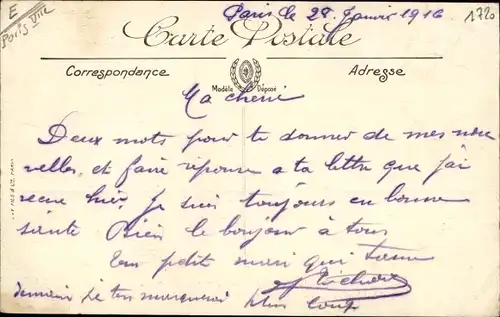 E
Paris VIII
Paris le 28 Janvier 1916
1720
Carte Postale
Correspondance
Adresse
Modèle Déposé
Ma cherie
Deux mots pour te donner de mes nou
velles, et faire réponse a ta lettre que j'ai
recue hier. Je suis toujours en bonne
sante Bien le bonjour à tous
Ton petit mari qui t'aime
demain je t'en marquerai plus long